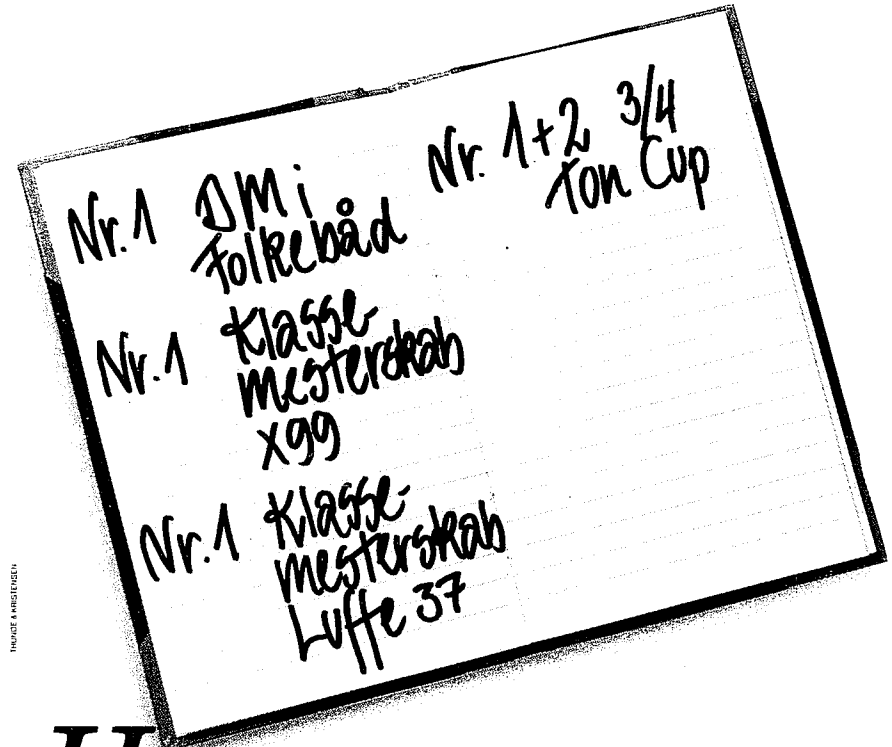 Nr. 1 DM i
Folkebåd
Nr. 1 Klasse-
mesterskab
X99
Nr. 1 Klasse-
mesterskab
Luffe 37
Nr. 1+2 3/4
Ton Cup
THUNDE & KRISTENSEN